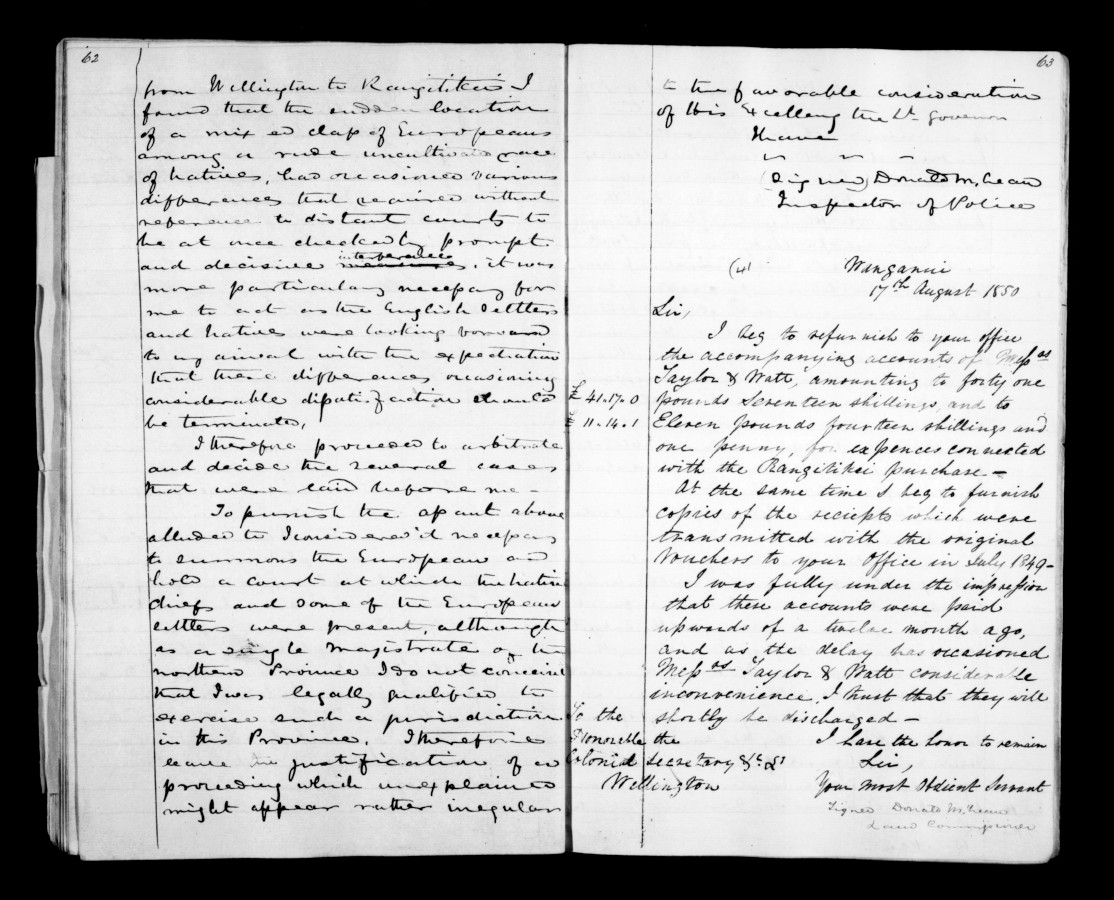 62
from Wellington to Rangitikei I
found that the sudden location
of a mixed class of Europeans
among a rude uncultivated race
of Natives, had occasioned various
differences that required without
reference to distant courts to
be at once checked by prompt
interference
and decisive measures, it was
more particularly necessary for
me to act as the English settlers
and natives were looking forward
to my arrival with the expectation
that these differences occasioning
considerable dissatisfaction should
be terminated.
I therefore proceeded to arbitrate
and decide the several cases
that were laid before me -
To punish the assault above
alluded to I consider'd necessary
to summons the European and
hold a court at which the Native
chiefs and some of the European
settlers were present, although
as a single magistrate of the
northern Province I do not conceive
that I was legally qualified to
exercise such a jurisdiction
in this Province. I therefore
leave in justification of a
proceeding which unexplained
might appear rather irregular
63
to the favorable consideration
of His Excellency the Lt. Governor
I have
" " "
(Signed) Donald McLean
Inspector of Police
(4) Wanganui
17th August 1850
Sir,
I beg to refurnish to your office
the accompanying accounts of Messrs
Taylor & Watt, amounting to forty one
£ 41.17.0 pounds Seventeen shillings, and to
£ 11.14.1 Eleven pounds fourteen shillings and
one penny, for expences connected
with the Rangitikei purchase -
At the same time I beg to furnish
copies of the reciepts which were
transmitted with the original
vouchers to your Office in July 1849 -
I was fully under the impression
that these accounts were paid
upwards of a twelve month ago,
and as the delay has occasioned
Messrs Taylor & Watt considerable
inconvenience, I trust that they will
shortly be discharged -
To the
Honorable the I have the honor to remain
Colonial Secretary &c &c Sir,
Wellington Your most Obdient Servant
Signed Donald McLean
Land Commissioner